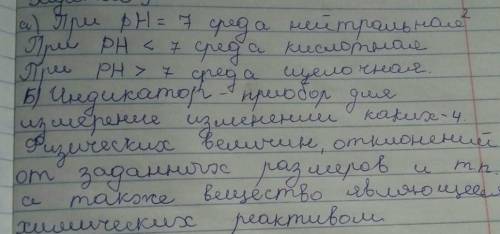 а) При pH = 7 среда нейтральная
При pH < 7 среда кислотная
При pH > 7 среда щелочная.
Б) Индикатор - прибор для
измерение изменении каких-л.
Физических величин, отклонений
от заданных размеров и т.п.
а также вещество являющееся
химических реактивом